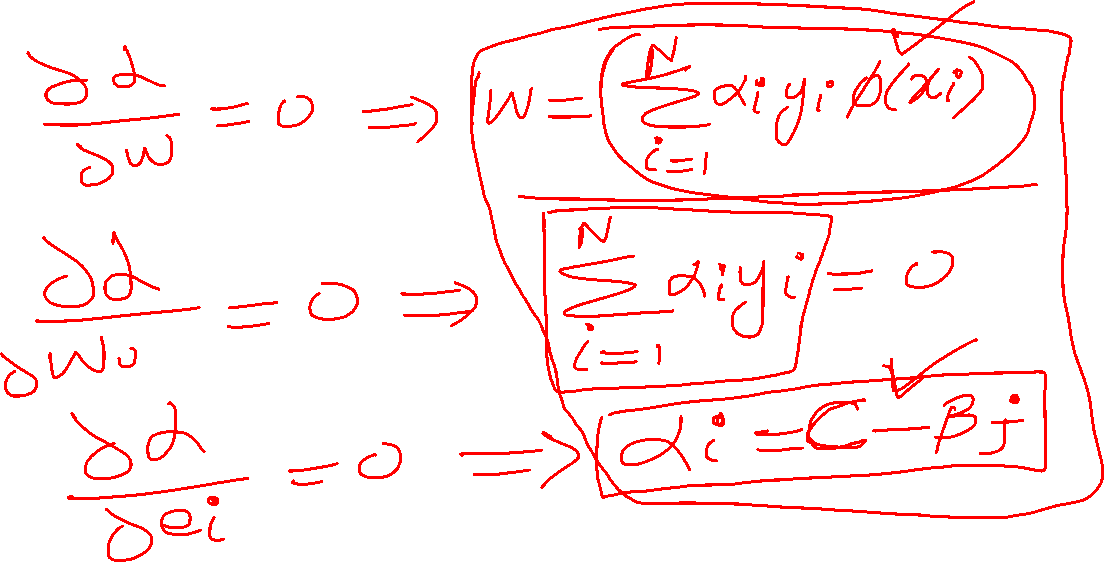 ∂α/∂w = 0 ⇒ w = ∑_{i=1}^{N} αi yi ϕ(xi)
∂α/∂w₀ = 0 ⇒ ∑_{i=1}^{N} αi yi = 0
∂α/∂ei = 0 ⇒ αi = C − βj